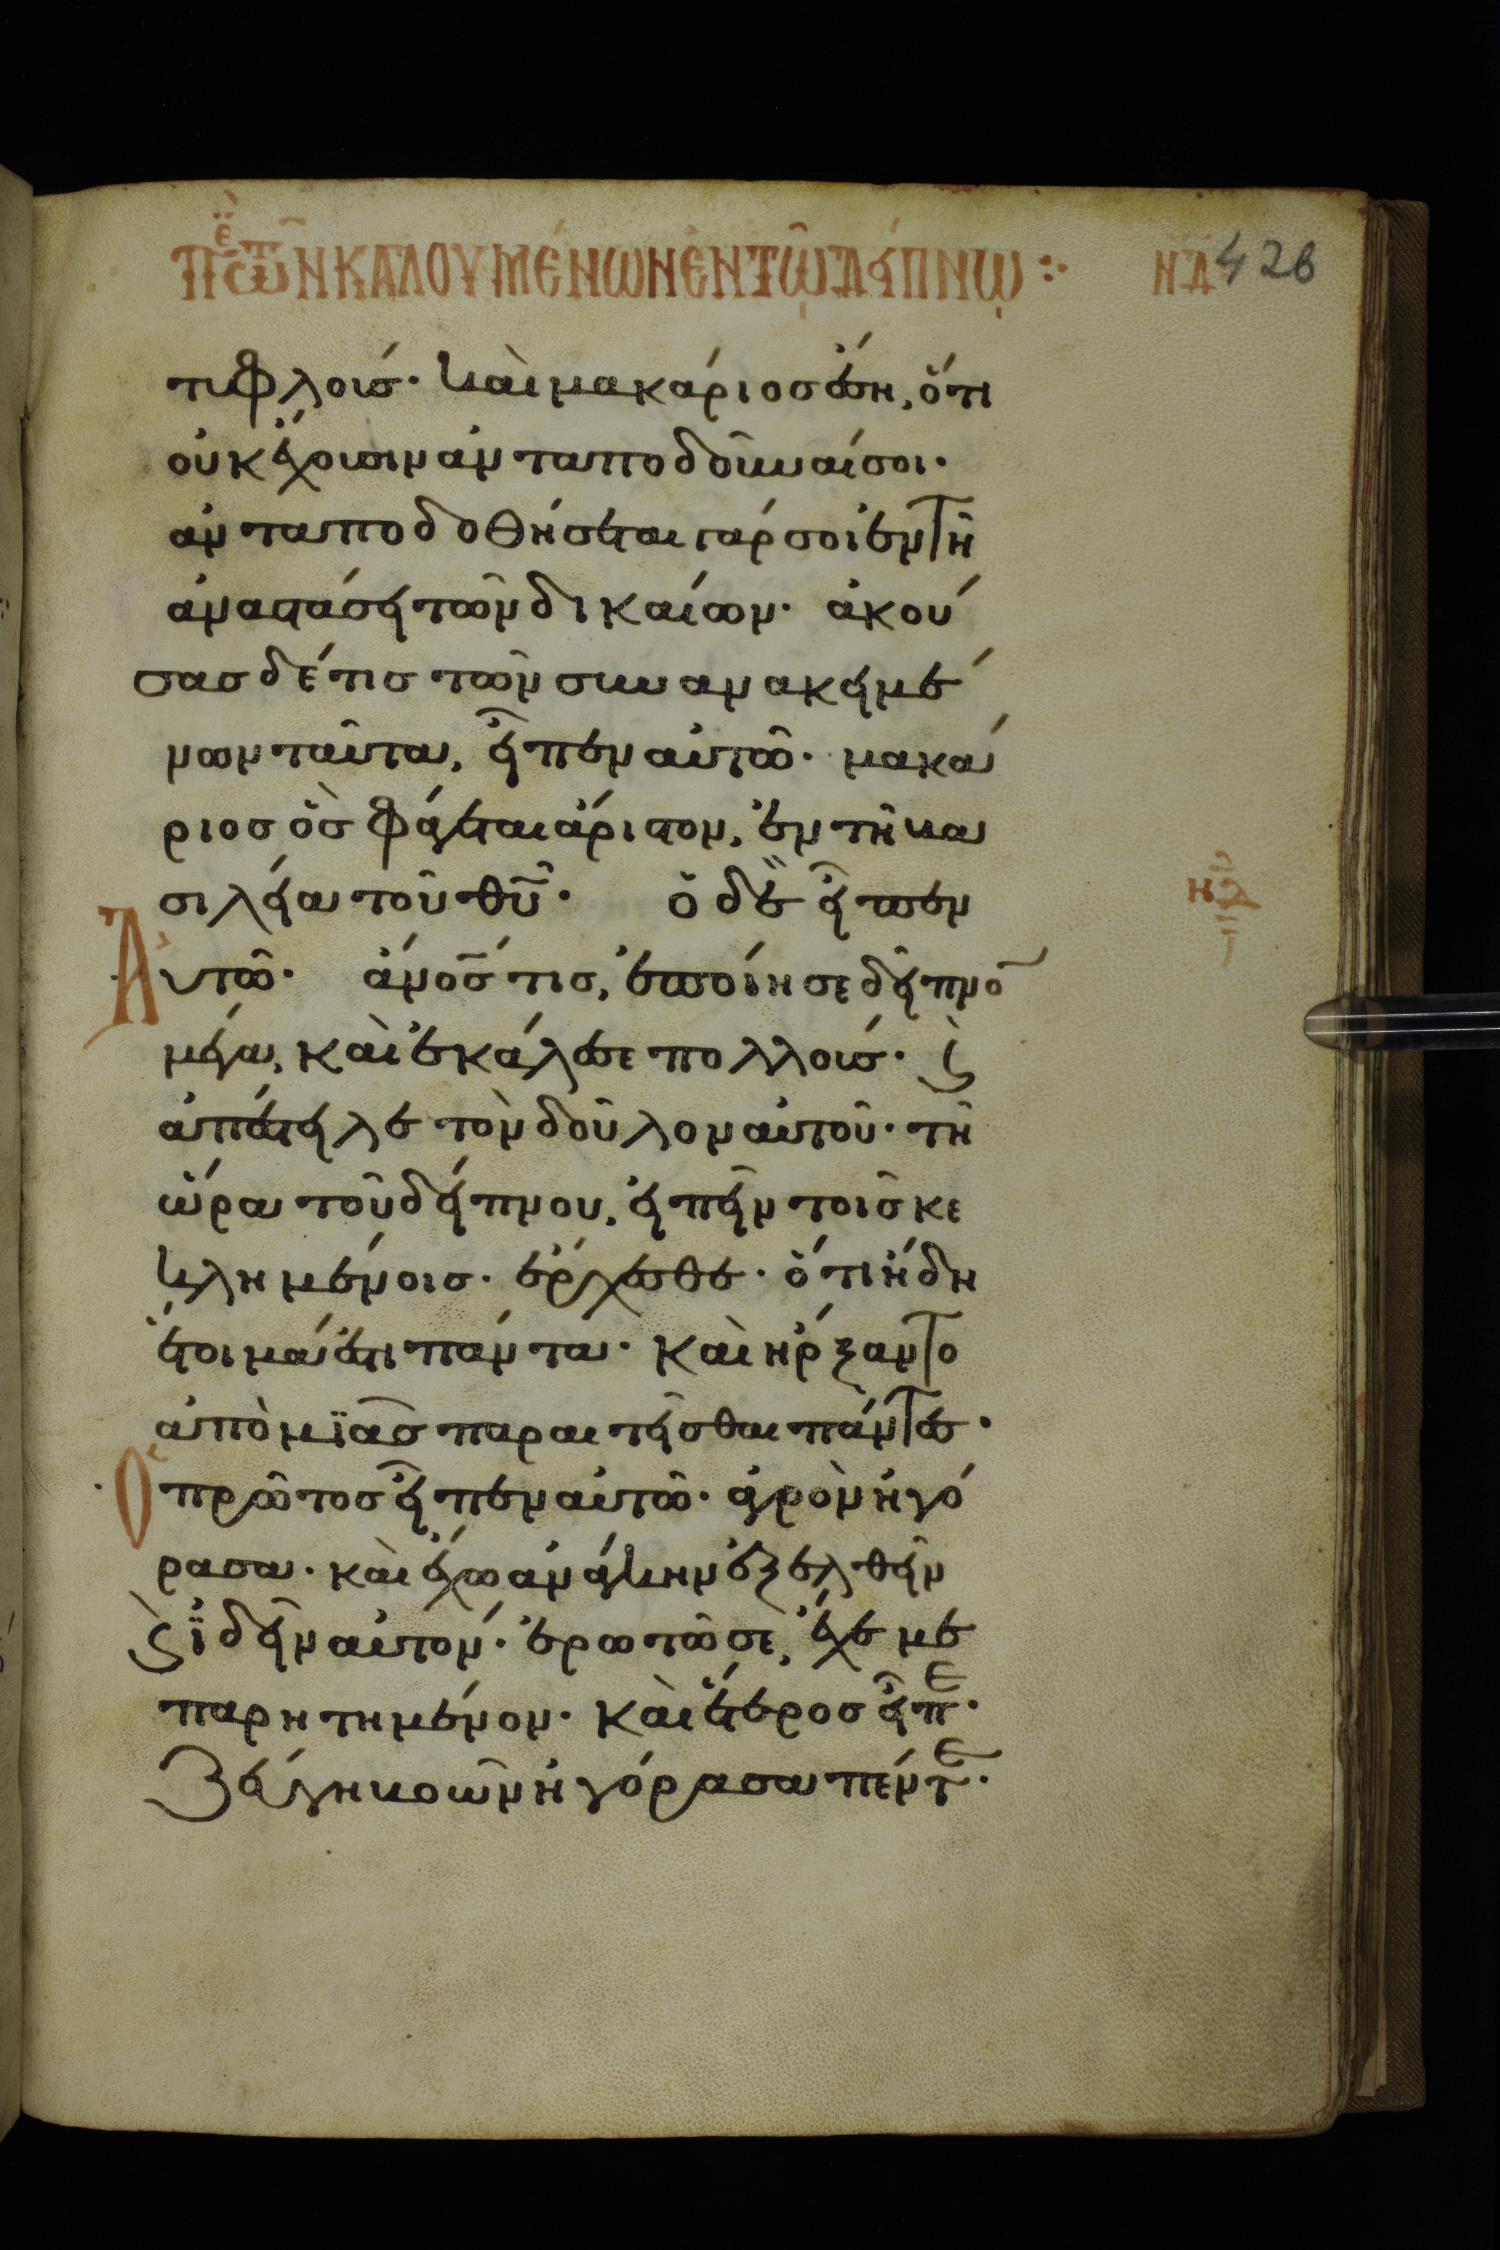 πε τῶν καλουμένων ἐν τῶ δείπνω : νδ 426
τυφλούσ· καὶ μακάριοσ ἔση, ὅτι
οὐκ ἔχουσιν ἀνταποδοῦναί σοι·
ἀνταποδοθήσεται γάρ σοι ἐν τῆ
ἀναστάσει τῶν δικαίων· ἀκού
σασ δέ τισ τῶν συνανακειμέ
νων ταῦτα, εἶπεν αὐτῶ· μακά
ριοσ ὃσ φάγεται ἄριστον, ἐν τῆ βα
σιλεία τοῦ θυ· ὁ δὲ εἶπεν
Αυτῶ· ἄνοσ τισ, ἐποίησε δεῖπνο
μέγα, καὶ ἐκάλεσε πολλούσ· ϗ
ἀπέστειλε τὸν δοῦλον αὐτοῦ· τῆ
ὥρα τοῦ δείπνου, εἰπεῖν τοῖσ κε
κλημένοισ· ἔρχεσθε· ὅτι ἤδη
ἕτοιμά ἐστι πάντα· καὶ ἤρξαντο
ἀπὸ μϊᾶσ παραιτεῖσθαι πάντεσ·
Ὁ πρῶτοσ εἶπεν αὐτῶ· ἀγρὸν ἠγό
ρασα· καὶ ἔχω ἀνάγκην ἐξελθεῖν
ϗ ἰδεῖν αὐτόν· ἐρωτῶ σε, ἔχε με
παρητημένον· καὶ ἕτεροσ εἶπε·
Ζεύγη βοῶν ἠγόρασα πέντε·